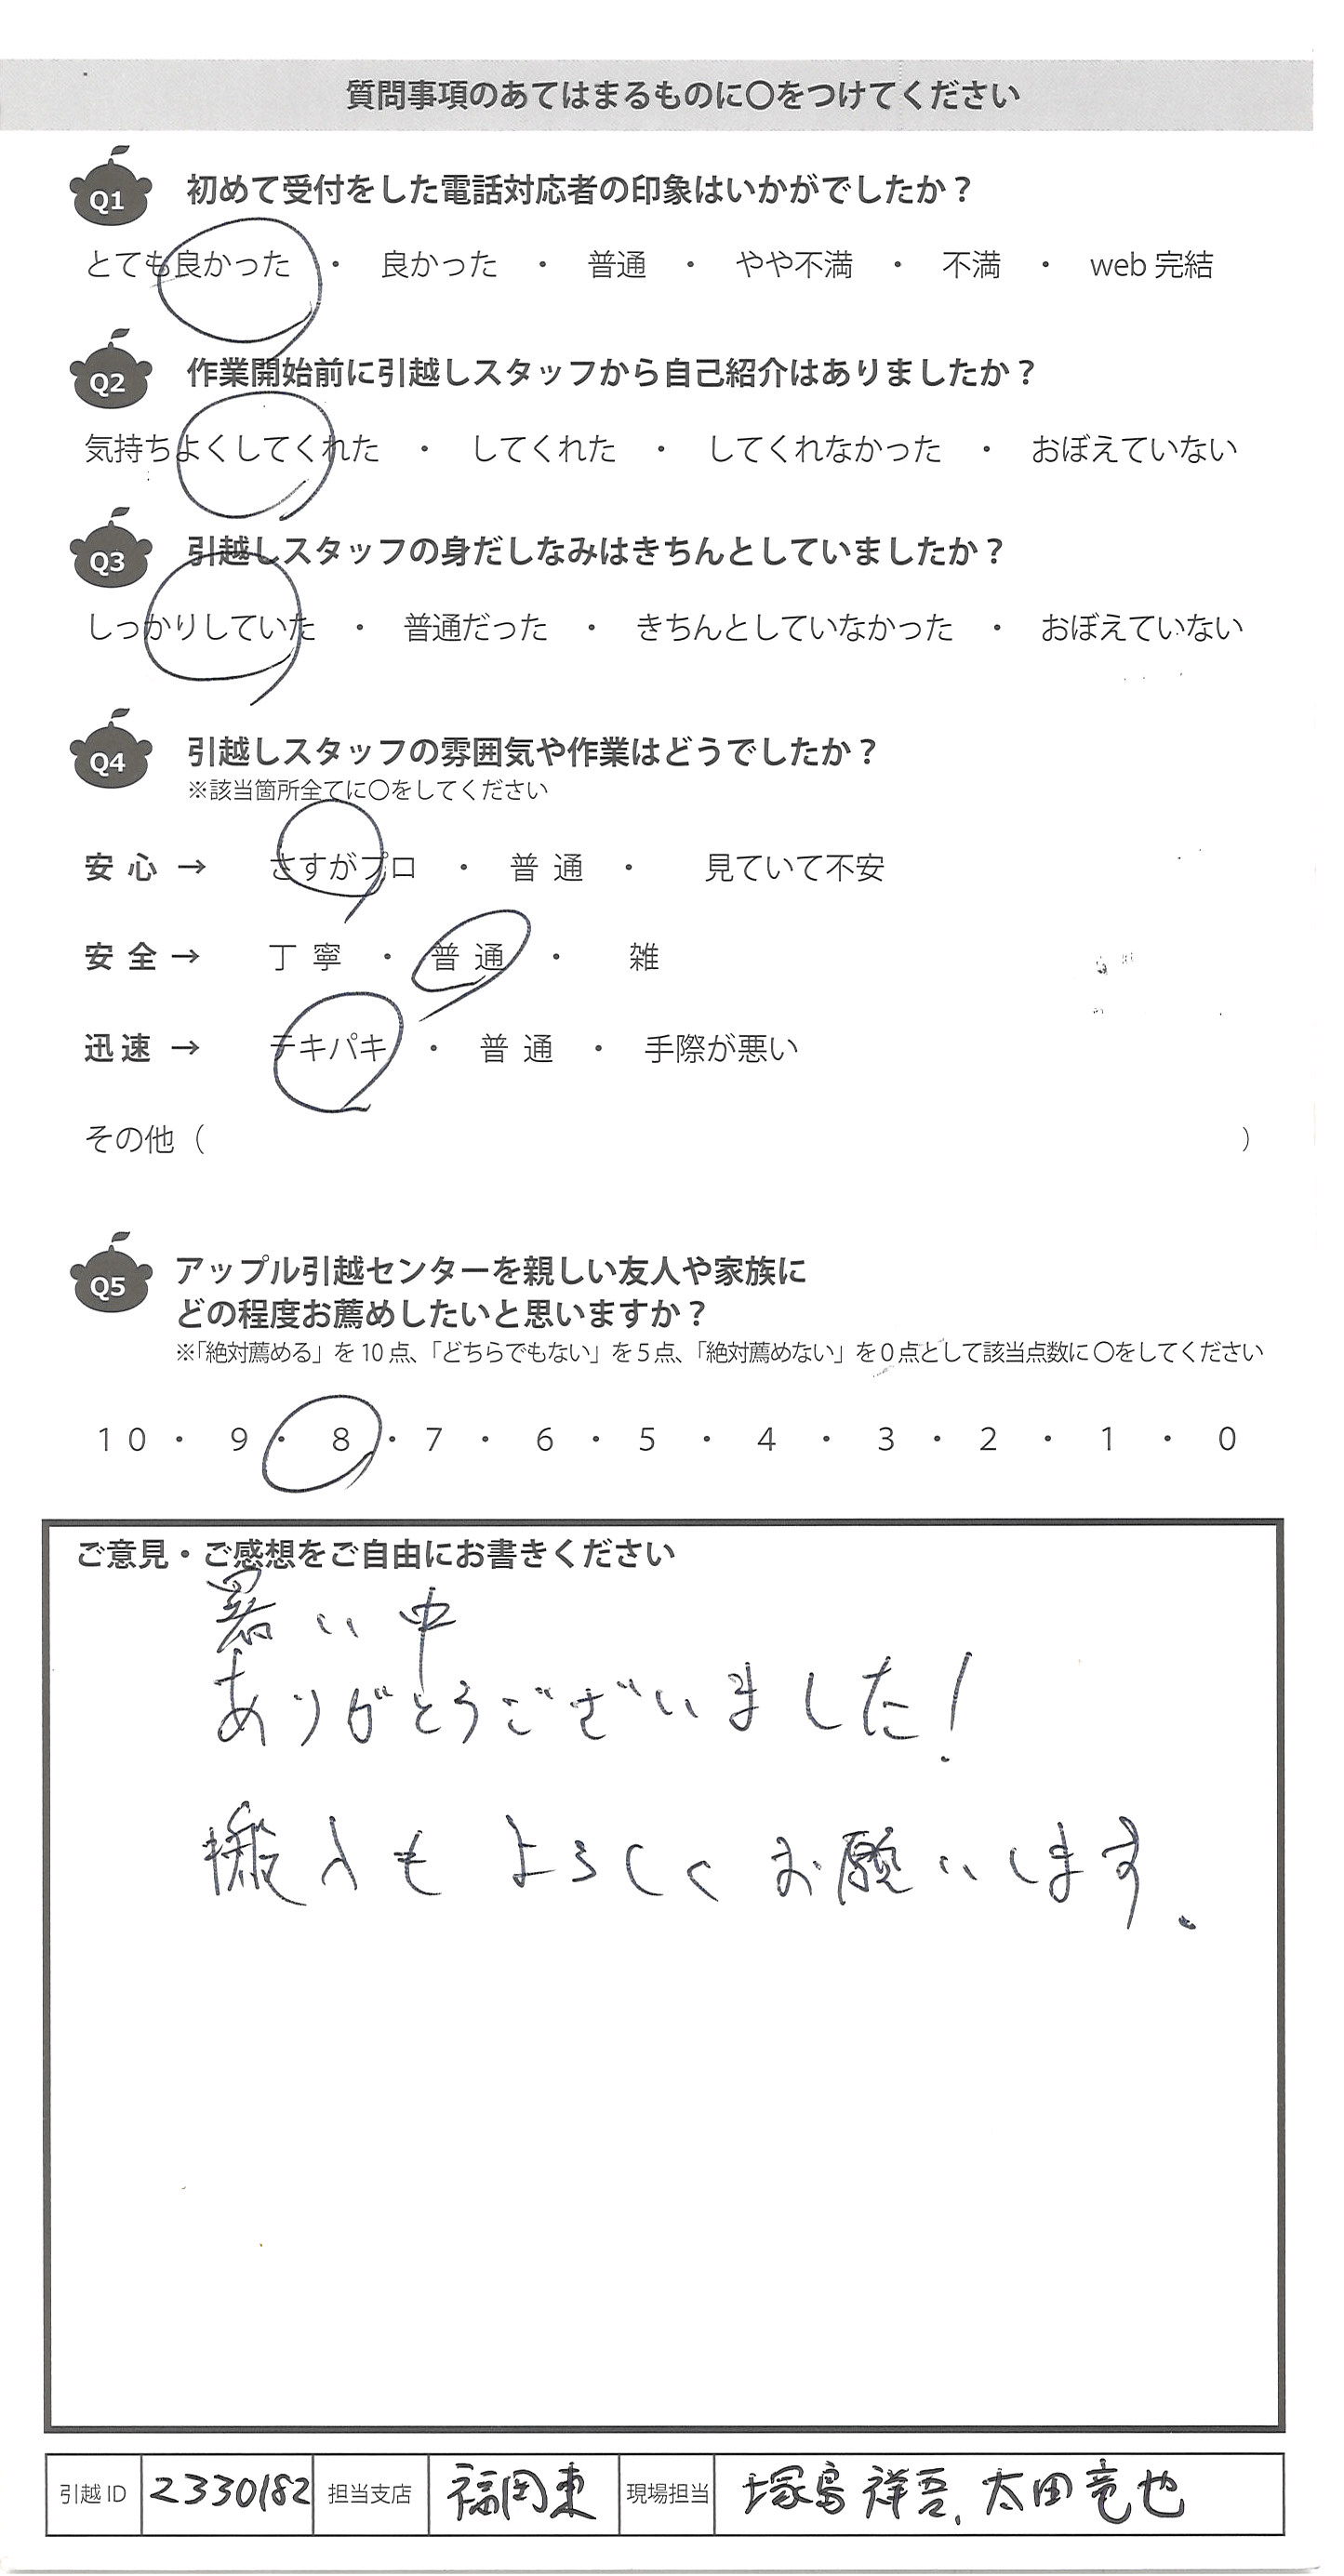 質問事項のあてはまるものに〇をつけてください
Q1 初めて受付をした電話対応者の印象はいかがでしたか？
とても良かった ・ 良かった ・ 普通 ・ やや不満 ・ 不満 ・ web 完結
Q2 作業開始前に引越しスタッフから自己紹介はありましたか？
気持ちよくしてくれた ・ してくれた ・ してくれなかった ・ おぼえていない
Q3 引越しスタッフの身だしなみはきちんとしていましたか？
しっかりしていた ・ 普通だった ・ きちんとしていなかった ・ おぼえていない
Q4 引越しスタッフの雰囲気や作業はどうでしたか？
※該当箇所全てに〇をしてください
安心 → さすがプロ ・ 普通 ・ 見ていて不安
安全 → 丁寧 ・ 普通 ・ 雑
迅速 → テキパキ ・ 普通 ・ 手際が悪い
その他（ ）
Q5 アップル引越センターを親しい友人や家族に
どの程度お薦めしたいと思いますか？
※「絶対薦める」を 10 点、「どちらでもない」を 5 点、「絶対薦めない」を 0 点として該当点数に〇をしてください
10 ・ 9 ・ 8 ・ 7 ・ 6 ・ 5 ・ 4 ・ 3 ・ 2 ・ 1 ・ 0
ご意見・ご感想をご自由にお書きください
暑い中
ありがとうございました！
搬入もよろしくお願いします.
引越 ID 2330182 担当支店 福岡東 現場担当 塚島祥吾, 太田竜也